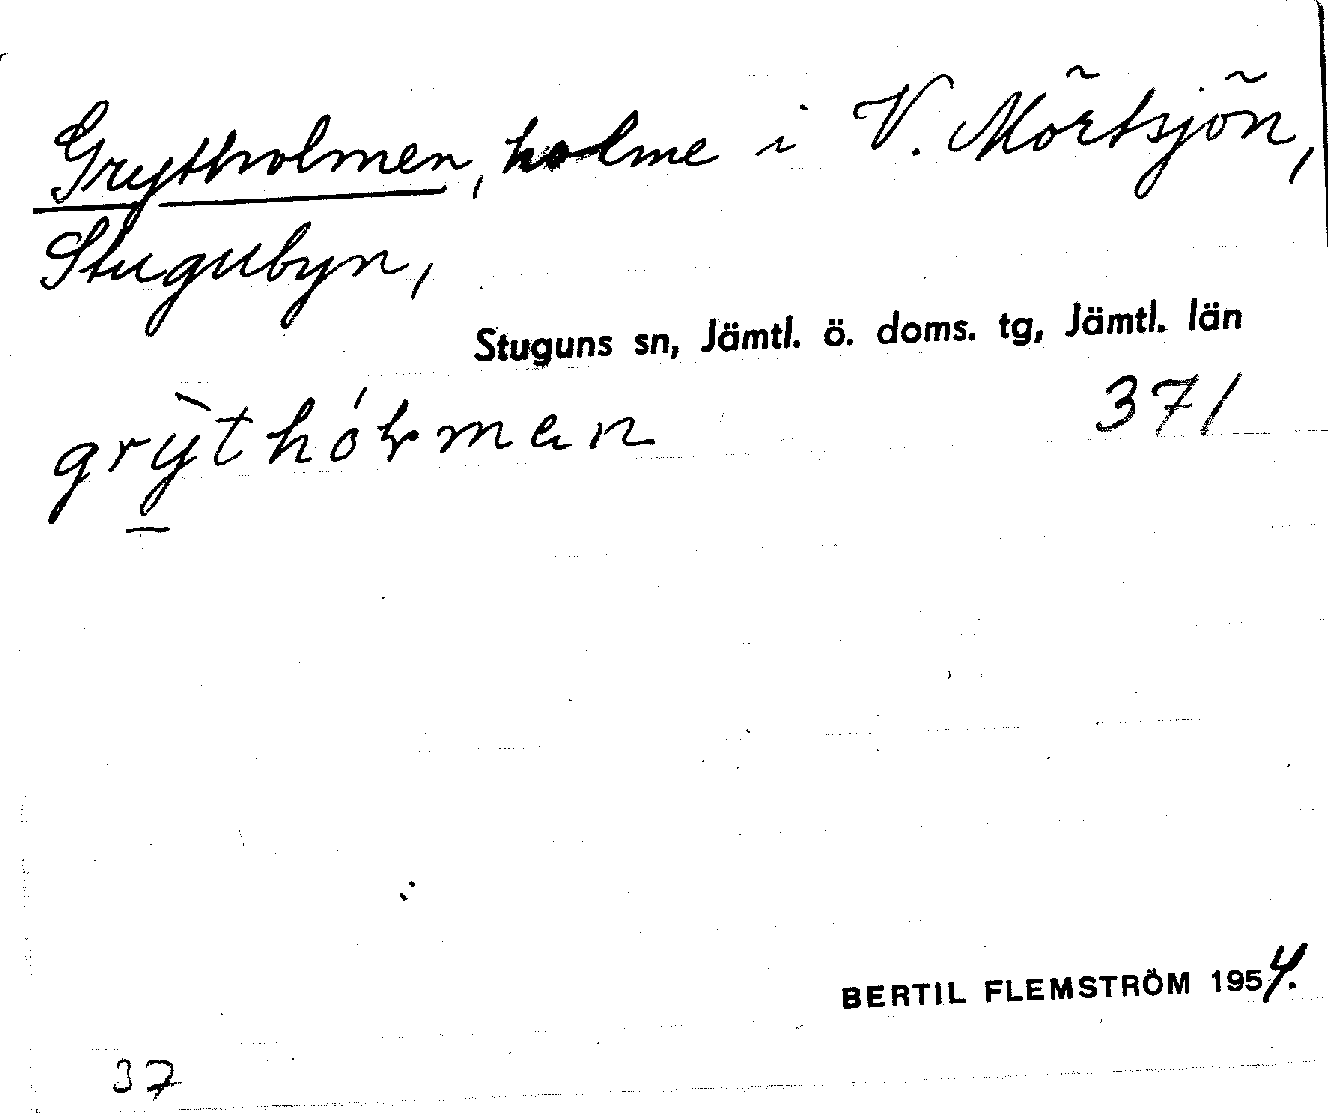 Grytholmen, holme i V. Mörtsjön,
Stugubyn,
Stuguns sn, Jämtl. ö. doms. tg, Jämtl. län
371
BERTIL FLEMSTRÖM 1954.
37